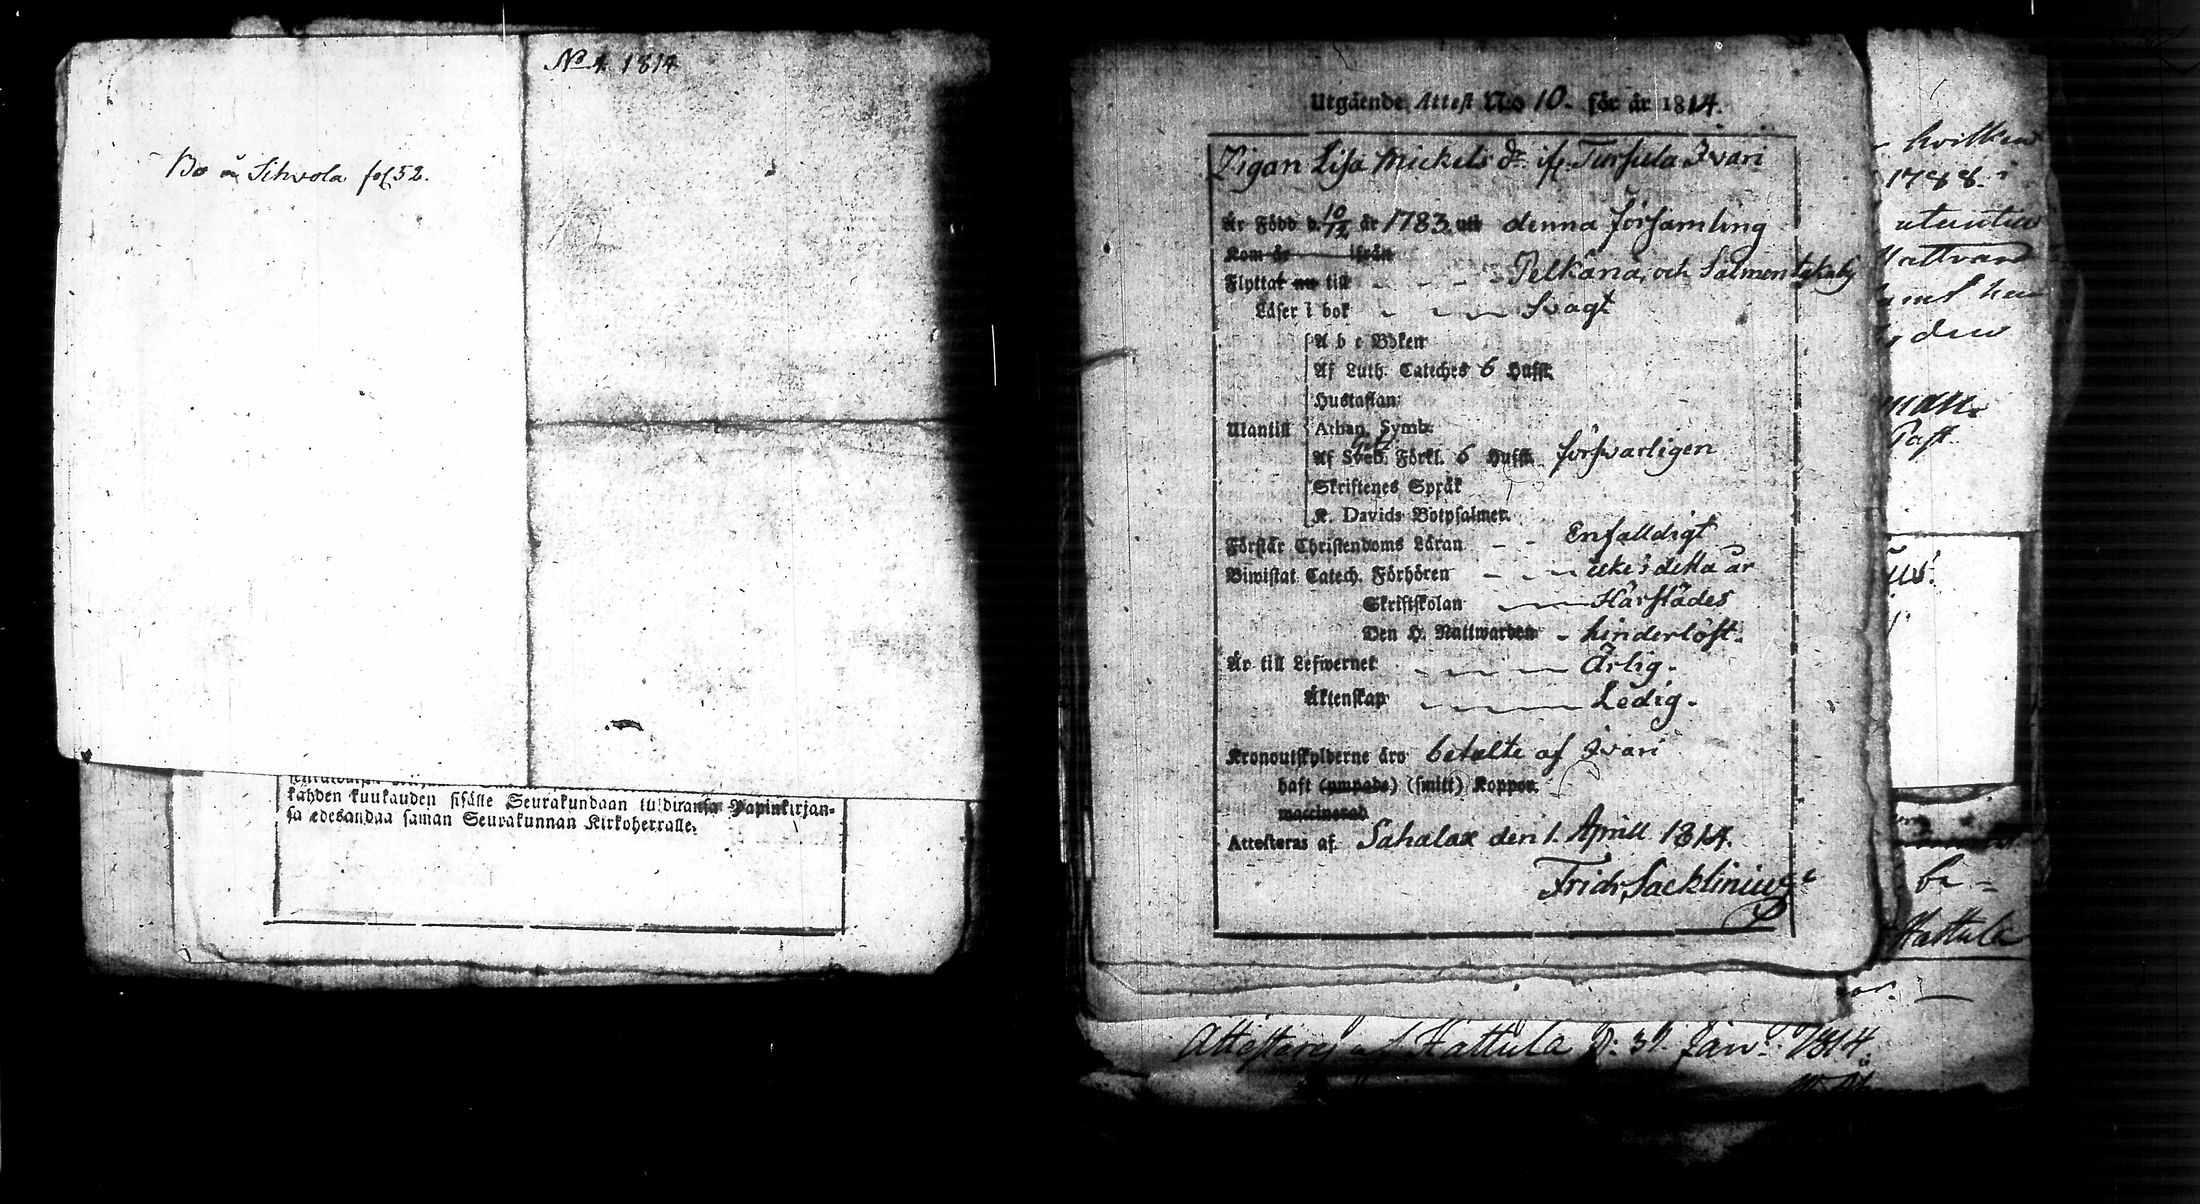 No 4. 1814
Bo å Sihvola fol 52.
kahden kuukauden sisälle Seurakundaan tuldiransa Papinkirjan-
sa edesandaa saman Seurakunnan Kirkoherralle.
Utgående Attest No 10. för år 1814.
Zigan Lisa Mickels dr ifr. Tursula Ivari
Är Född d. 10/12 år 1783 utí denna församling
Kom år ifrån
Flyttat nu till Pelkäna och Salmentakaby
Läser i bok Svagt
A b c Boken
Af Luth. Cateches 6 Huffst.
Hustaflan
Utantill Athan. Symb.
Af Sveb. Förkl. 6 Huffst. försvarligen
Skriftenes Språk
K. Davids Botpsalmer.
Förstår Christendoms Läran Enfalldigt
Biwistat Catech. Förhören icke i detta år
Skriftskolan Härstädes
Den H. Nattwarden hinderlöst.
Är till Lefwernet Ärlig.
Äktenskap Ledig.
Kronoutskylderne äro betalte af Ivari
haft (ympade) (smitt) Koppor.
waccinerad
Attesteras af Sahalax den 1. Aprill 1814.
Fridr Sacklinius
hvilken
1788. i
den
Hattula
Attesteras af Hattula D. 31. Jan. 1814.